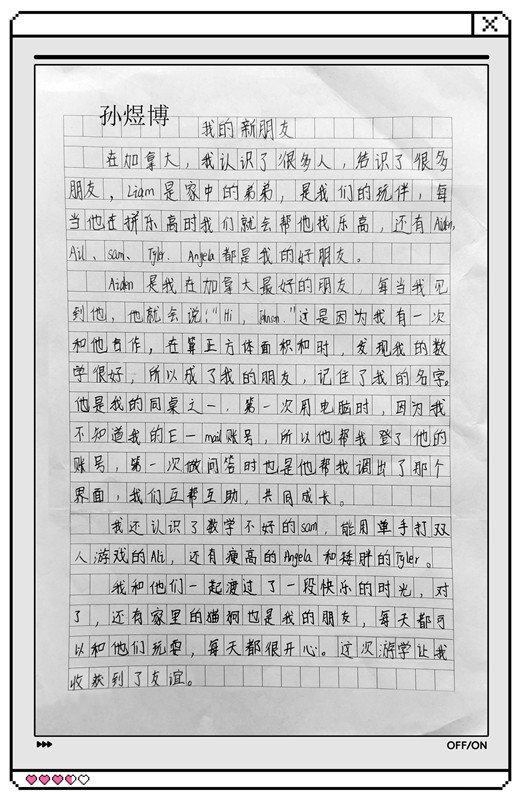 孙煜博
我的新朋友
在加拿大，我认识了很多人，结识了很多
朋友，Liam是家中的弟弟，是我们的玩伴，每
当他在拼乐高时我们就会帮他找乐高，还有Aiden,
Ail、sam、Tyler、Angela都是我的好朋友。
Aiden是我在加拿大最好的朋友，每当我见
到他，他就会说：“Hi，Johnson.”这是因为我有一次
和他合作，在算正方体面积和时，发现我的数
学很好，所以成了我的朋友，记住了我的名字。
他是我的同桌之一，第一次用电脑时，因为我
不知道我的E一mail账号，所以他帮我登了他的
账号，第一次做问答时也是他帮我调出了那个
界面，我们互帮互助，共同成长。
我还认识了数学不好的sam，能用单手打双
人游戏的Ali，还有瘦高的Angela和矮胖的Tyler。
我和他们一起渡过了一段快乐的时光，对
了，还有家里的猫狗也是我的朋友，每天都可
以和他们玩耍，每天都很开心。这次游学让我
收获到了友谊。
OFF/ON